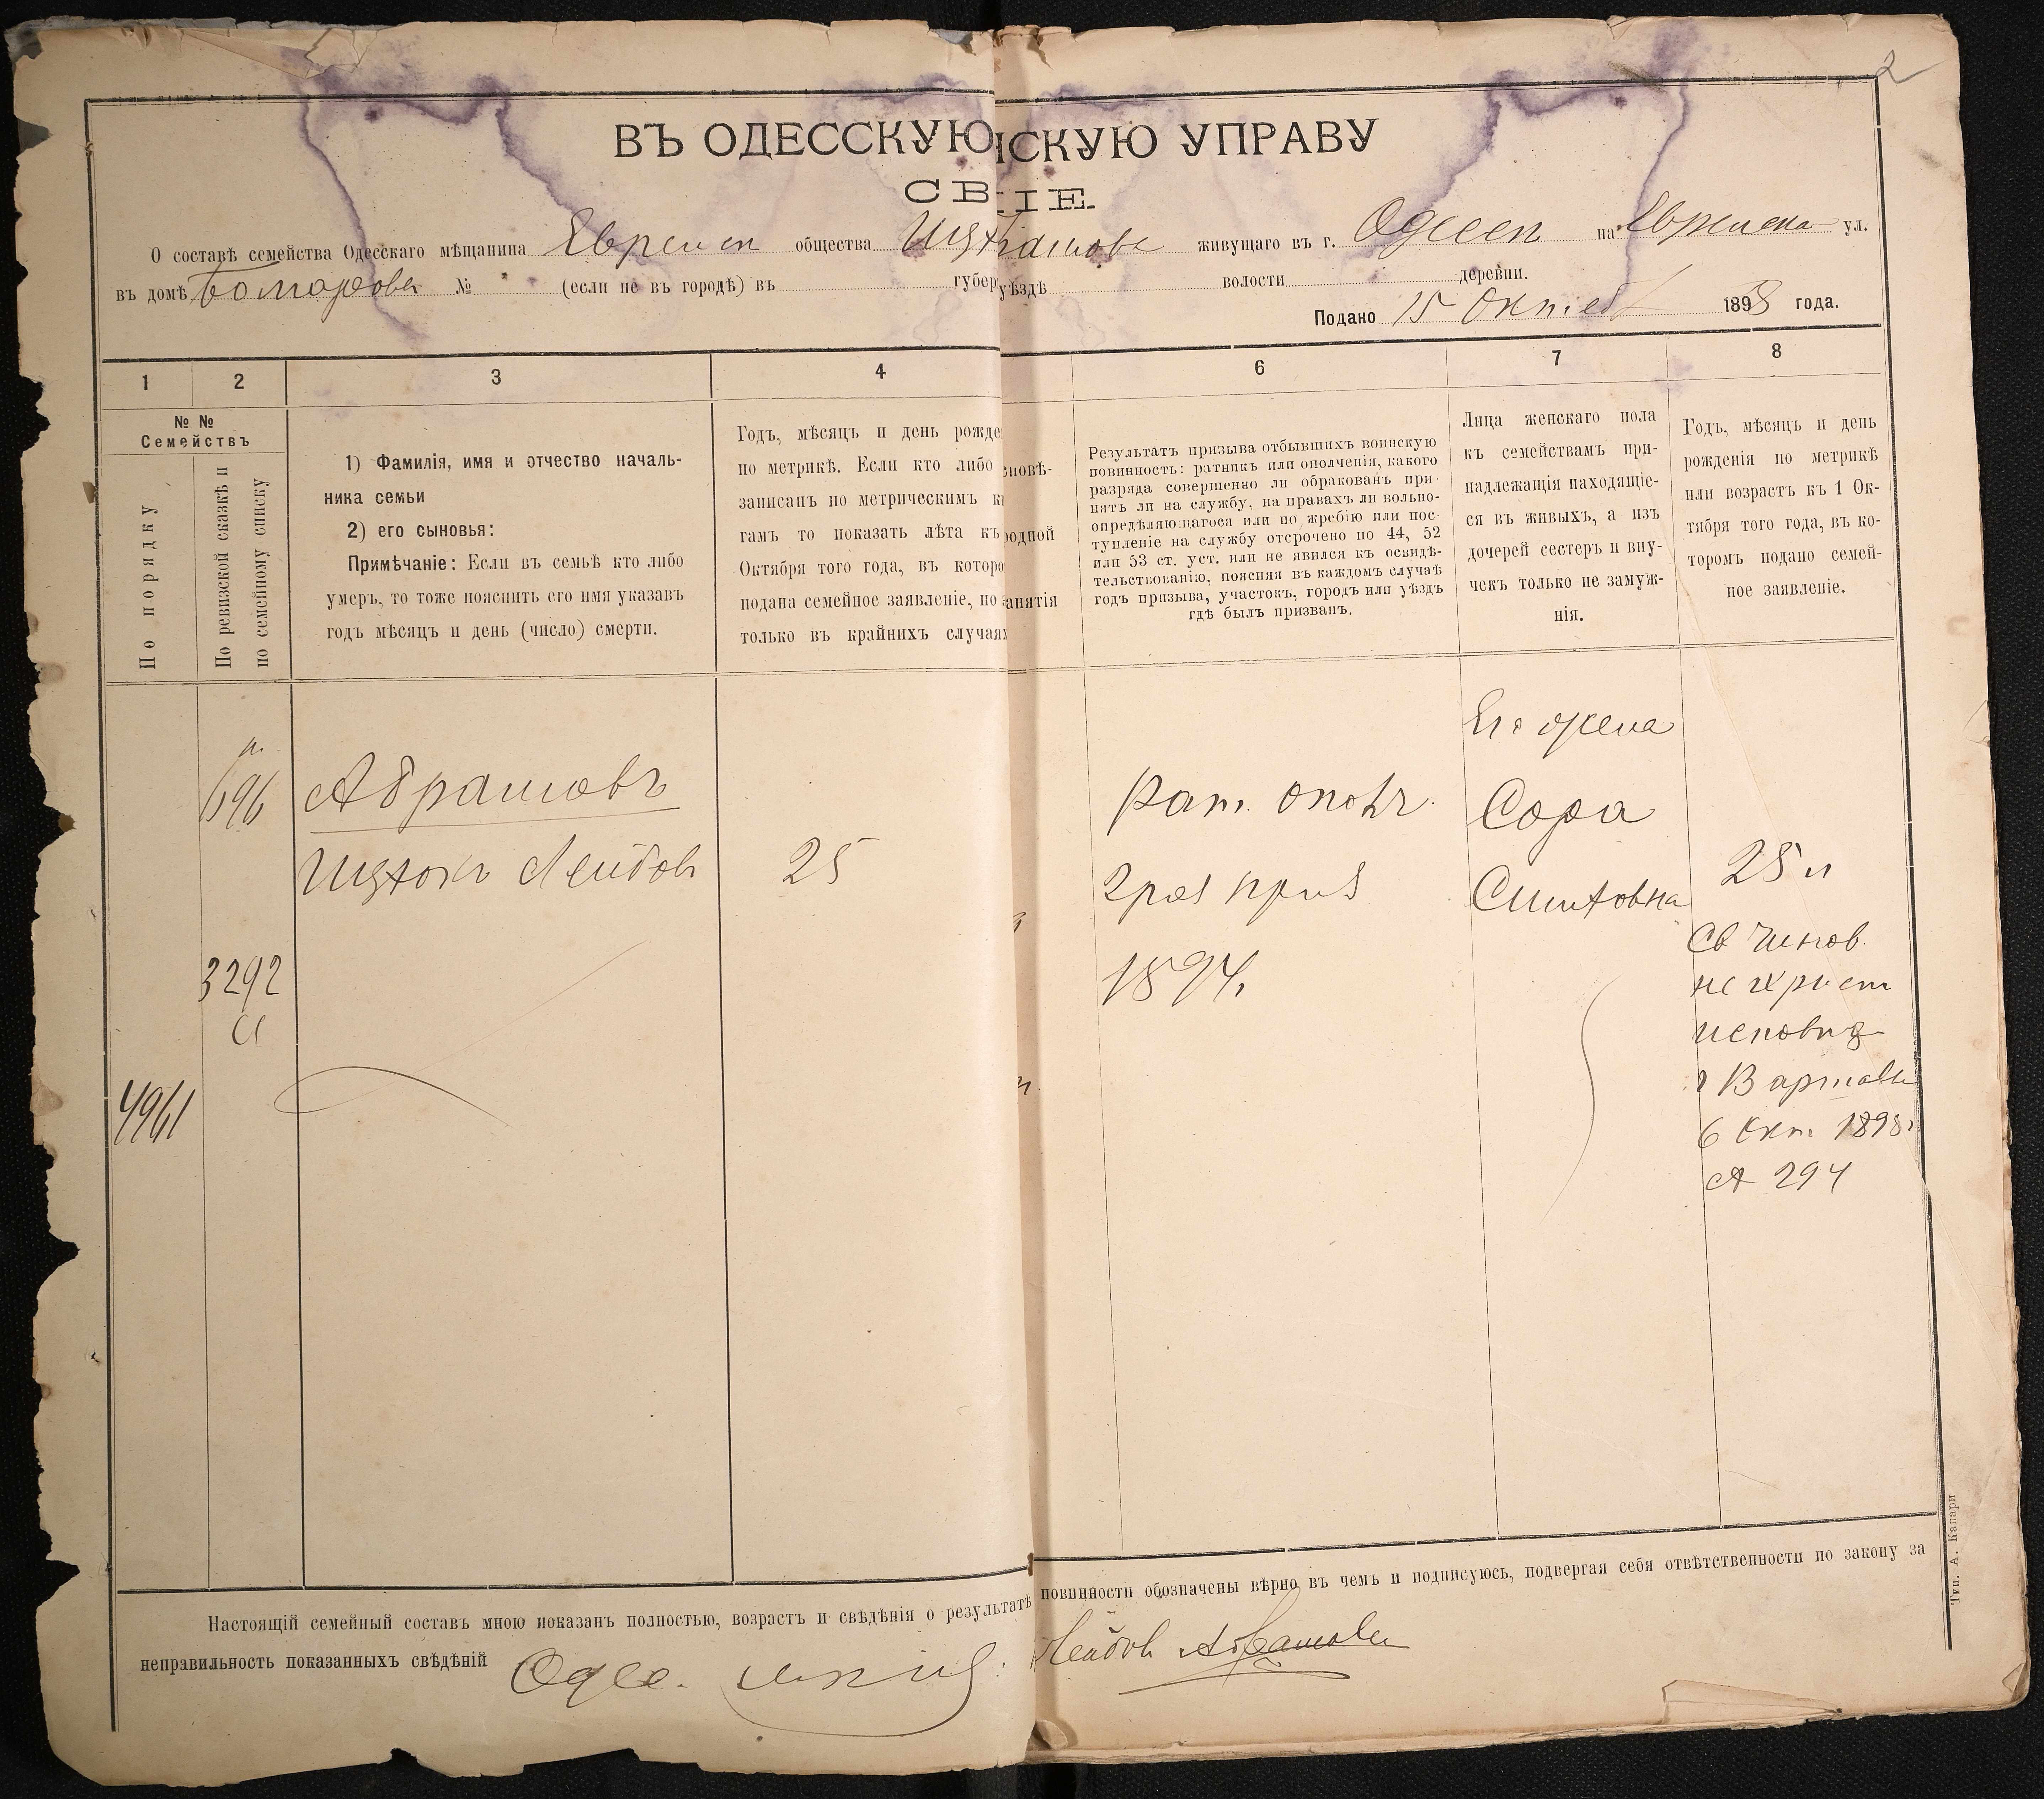 2
ВЪ ОДЕССКУЮ НСКУЮ УПРАВУ
СВ НІЕ.
О составѣ семейства Одесскаго мѣщанина Еврейск общества живущаго въ г. Одессѣ на Еврейска ул.
въ домѣ № (если не въ городѣ) въ губер уѣздѣ волости деревни.
Подано 15 Октяб 1898 года.
1 2 3 4 6 7 8
№ №
Семействъ
По порядку
По ревизской сказкѣ и
по семейному списку
1) Фамилія, имя и отчество началь-
ника семьи
2) его сыновья:
Примѣчаніе: Если въ семьѣ кто либо
умеръ, то тоже пояснить его имя указавъ
годъ мѣсяцъ и день (число) смерти.
Годъ, мѣсяцъ и день рожде
по метрикѣ. Если кто либо
записанъ по метрическимъ к
гамъ то показать лѣта къ
Октября того года, въ которо
подана семейное заявленіе, но
только въ крайнихъ случая
повѣ-
родной
занятія
Результатъ призыва отбывшихъ воинскую
повинность: ратникъ или ополченія, какого
разряда совершенно ли обракованъ при-
нятъ ли на службу, на правахъ ли вольно-
опредѣляющагося или по жребію или пос-
тупленіе на службу отсрочено по 44, 52
или 53 ст. уст. или не явился къ освидѣ-
тельствованію, поясняя въ каждомъ случаѣ
годъ призыва, участокъ, городъ или уѣздъ
гдѣ былъ призванъ.
Лица женскаго пола
къ семействамъ при-
надлежащія находящіе-
ся въ живыхъ, а изъ
дочерей сестеръ и вну-
чекъ только не замуж-
нія.
Годъ, мѣсяцъ и день
рожденія по метрикѣ
или возрастъ къ 1 Ок-
тября того года, въ ко-
торомъ подано семей-
ное заявленіе.
696
Абрамовъ
Ицхокъ Лейбов
25
3292
4961
Рат. ополч.
2 раз приз
1894.
Его жена
Сора
Симховна
25 л
Св чинов.
не христ
исповѣд
г Варшавы
6 Окт. 1898
294
Настоящій семейный составъ мною показанъ полностью, возрастъ и свѣдѣнія о результатѣ повинности обозначены вѣрно въ чемъ и подписуюсь, подвергая себя отвѣтственности по закону за
неправильность показанныхъ свѣдѣній Одес. мѣщ. Лейбов Абрамовъ
Тип. А. Капари